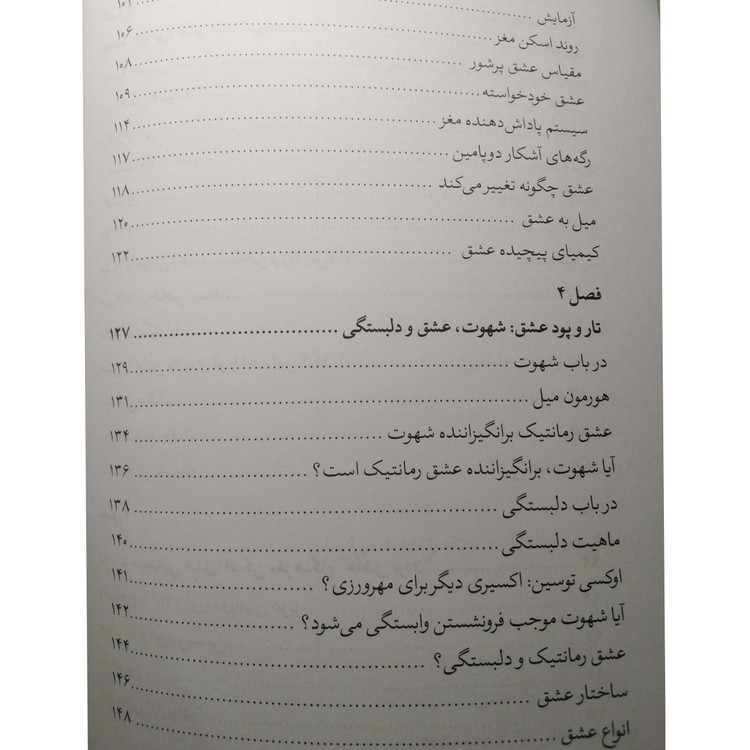 آزمایش ........ ۱۰۱
روند اسکن مغز ........ ۱۰۶
مقیاس عشق پرشور ........ ۱۰۸
عشق خودخواسته ........ ۱۰۹
سیستم پاداش‌دهنده مغز ........ ۱۱۴
رگه‌های آشکار دوپامین ........ ۱۱۷
عشق چگونه تغییر می‌کند ........ ۱۱۸
میل به عشق ........ ۱۲۰
کیمیای پیچیده عشق ........ ۱۲۲
فصل ۴
تار و پود عشق: شهوت، عشق و دلبستگی ........ ۱۲۷
در باب شهوت ........ ۱۲۹
هورمون میل ........ ۱۳۱
عشق رمانتیک برانگیزاننده شهوت ........ ۱۳۴
آیا شهوت، برانگیزاننده عشق رمانتیک است؟ ........ ۱۳۶
در باب دلبستگی ........ ۱۳۸
ماهیت دلبستگی ........ ۱۴۰
اوکسی توسین: اکسیری دیگر برای مهرورزی؟ ........ ۱۴۱
آیا شهوت موجب فرونشستن وابستگی می‌شود؟ ........ ۱۴۲
عشق رمانتیک و دلبستگی؟ ........ ۱۴۴
ساختار عشق ........ ۱۴۶
انواع عشق ........ ۱۴۸